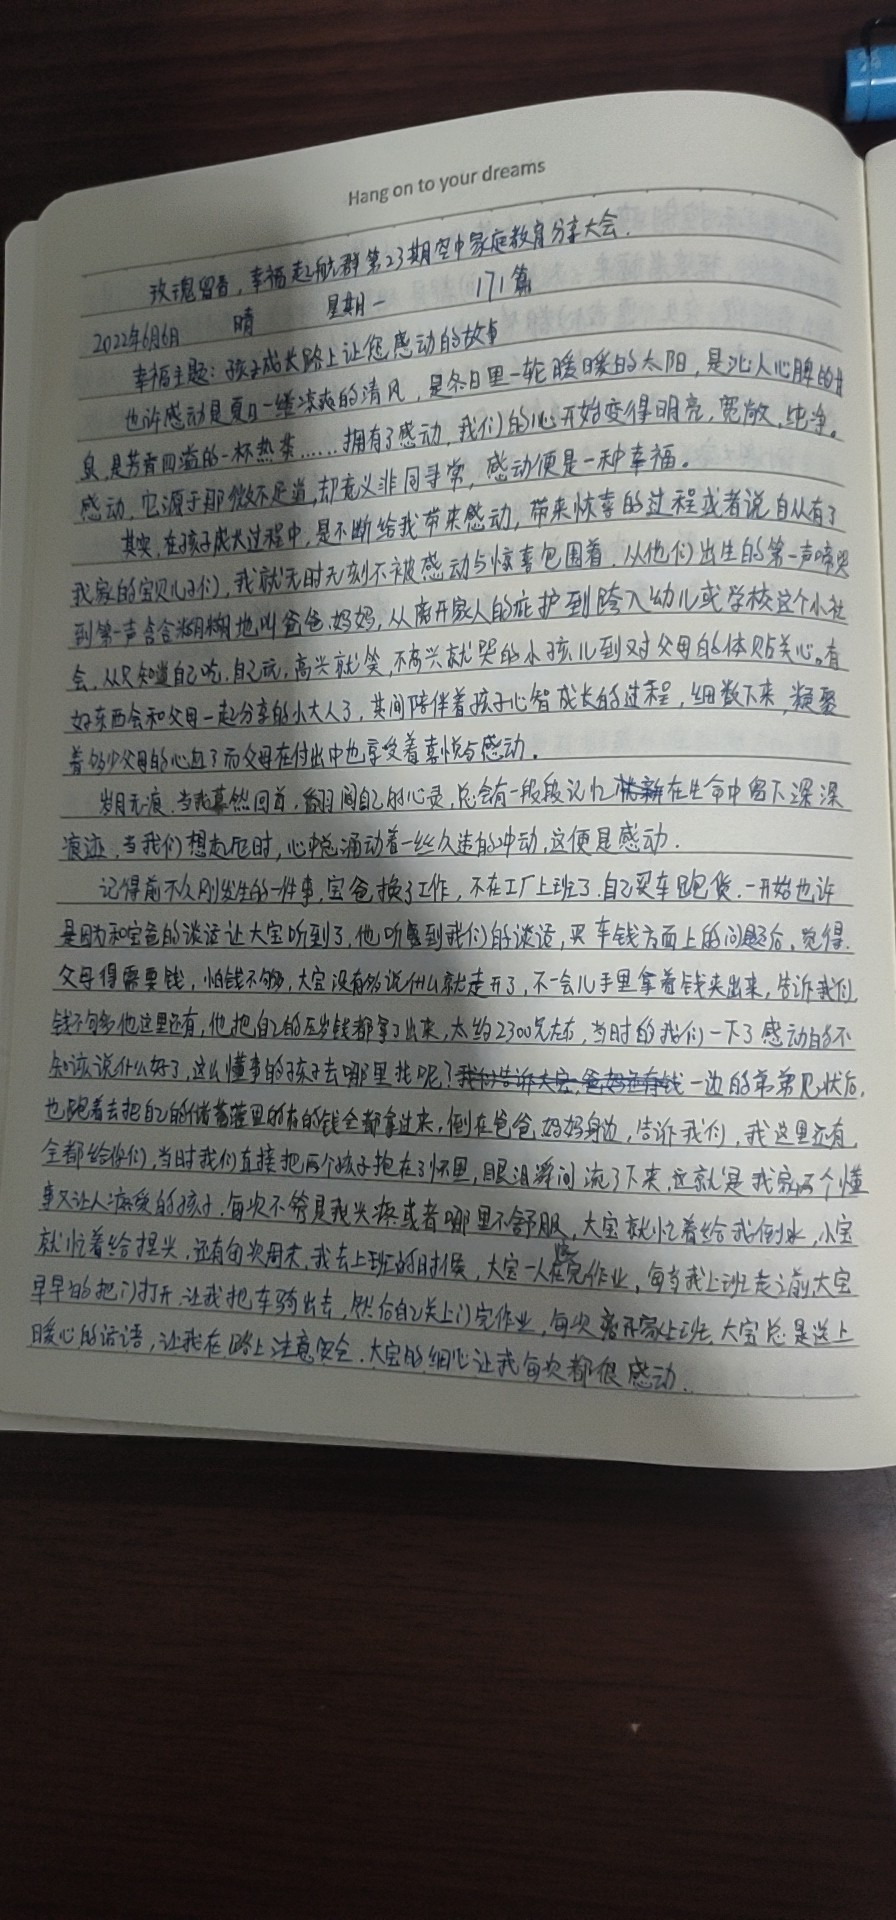 Hang on to your dreams
玫瑰留香，幸福起航群第23期空中家庭教育分享大会．
2022年6月6 晴 星期一 171篇
幸福主题：孩子成长路上让您感动的故事
也许感动是夏日一缕凉爽的清风，是冬日里一轮暖暖的太阳，是沁人心脾的
息，是芳香四溢的一杯热茶……拥有了感动，我们的心开始变得明亮，宽敞，纯净。
感动，它源于那微不足道，却意义非同寻常，感动便是一种幸福。
其实，在孩子成长过程中，是不断给我带来感动，带来惊喜的过程或者说自从有了
我家的宝贝儿子们，我就无时无刻不被感动与惊喜包围着，从他们出生的第一声啼哭
到第一声含含糊糊地叫爸爸、妈妈，从离开家人的庇护到跨入幼儿或学校这个小社
会，从只知道自己吃，自己玩，高兴就笑，不高兴就哭的小孩儿到对父母的体贴关心。有
好东西会和父母一起分享的小大人了，其间陪伴着孩子心智成长的过程，细数下来，凝聚
着多少父母的心血了而父母在付出中也享受着喜悦与感动．
岁月无痕，当我蓦然回首，翻阅自己的心灵，总会有一段段记忆在生命中留下深深
痕迹，当我们想起时，心中总涌动着一丝久违的冲动，这便是感动．
记得前不久刚发生的一件事，宝爸换了工作，不在工厂上班了．自己买车跑货．一开始也许
是因为和宝爸的谈话让大宝听到了，他听到我们的谈话，买车钱方面上的问题后，觉得．
父母得需要钱，怕钱不够，大宝没有多说什么就走开了，不一会儿手里拿着钱夹出来，告诉我们
钱不够他这里还有，他把自己的压岁钱都拿了出来，大约2300元左右，当时的我们一下了感动的不
知该说什么好了，这么懂事的孩子去哪里找呢？一边的弟弟见状后，
也跑着去把自己的储蓄罐里的有的钱全都拿过来，倒在爸爸，妈妈身边，告诉我们，我这里还有，
全都给你们，当时我们直接把两个孩子抱在了怀里，眼泪瞬间流了下来，这就是我家两个懂
事又让人疼爱的孩子．每次不管是我头疼或者哪里不舒服，大宝就忙着给我倒水，小宝
就忙着给捏头，还有每次周末，我去上班的时候，大宝一人在家完作业，每当我上班走之前，大宝
早早的把门打开，让我把车骑出去，然后自己关上门完作业，每次离开家上班，大宝总是送上
暖心的话语，让我在路上注意安全．大宝的细心让我每次都很感动．